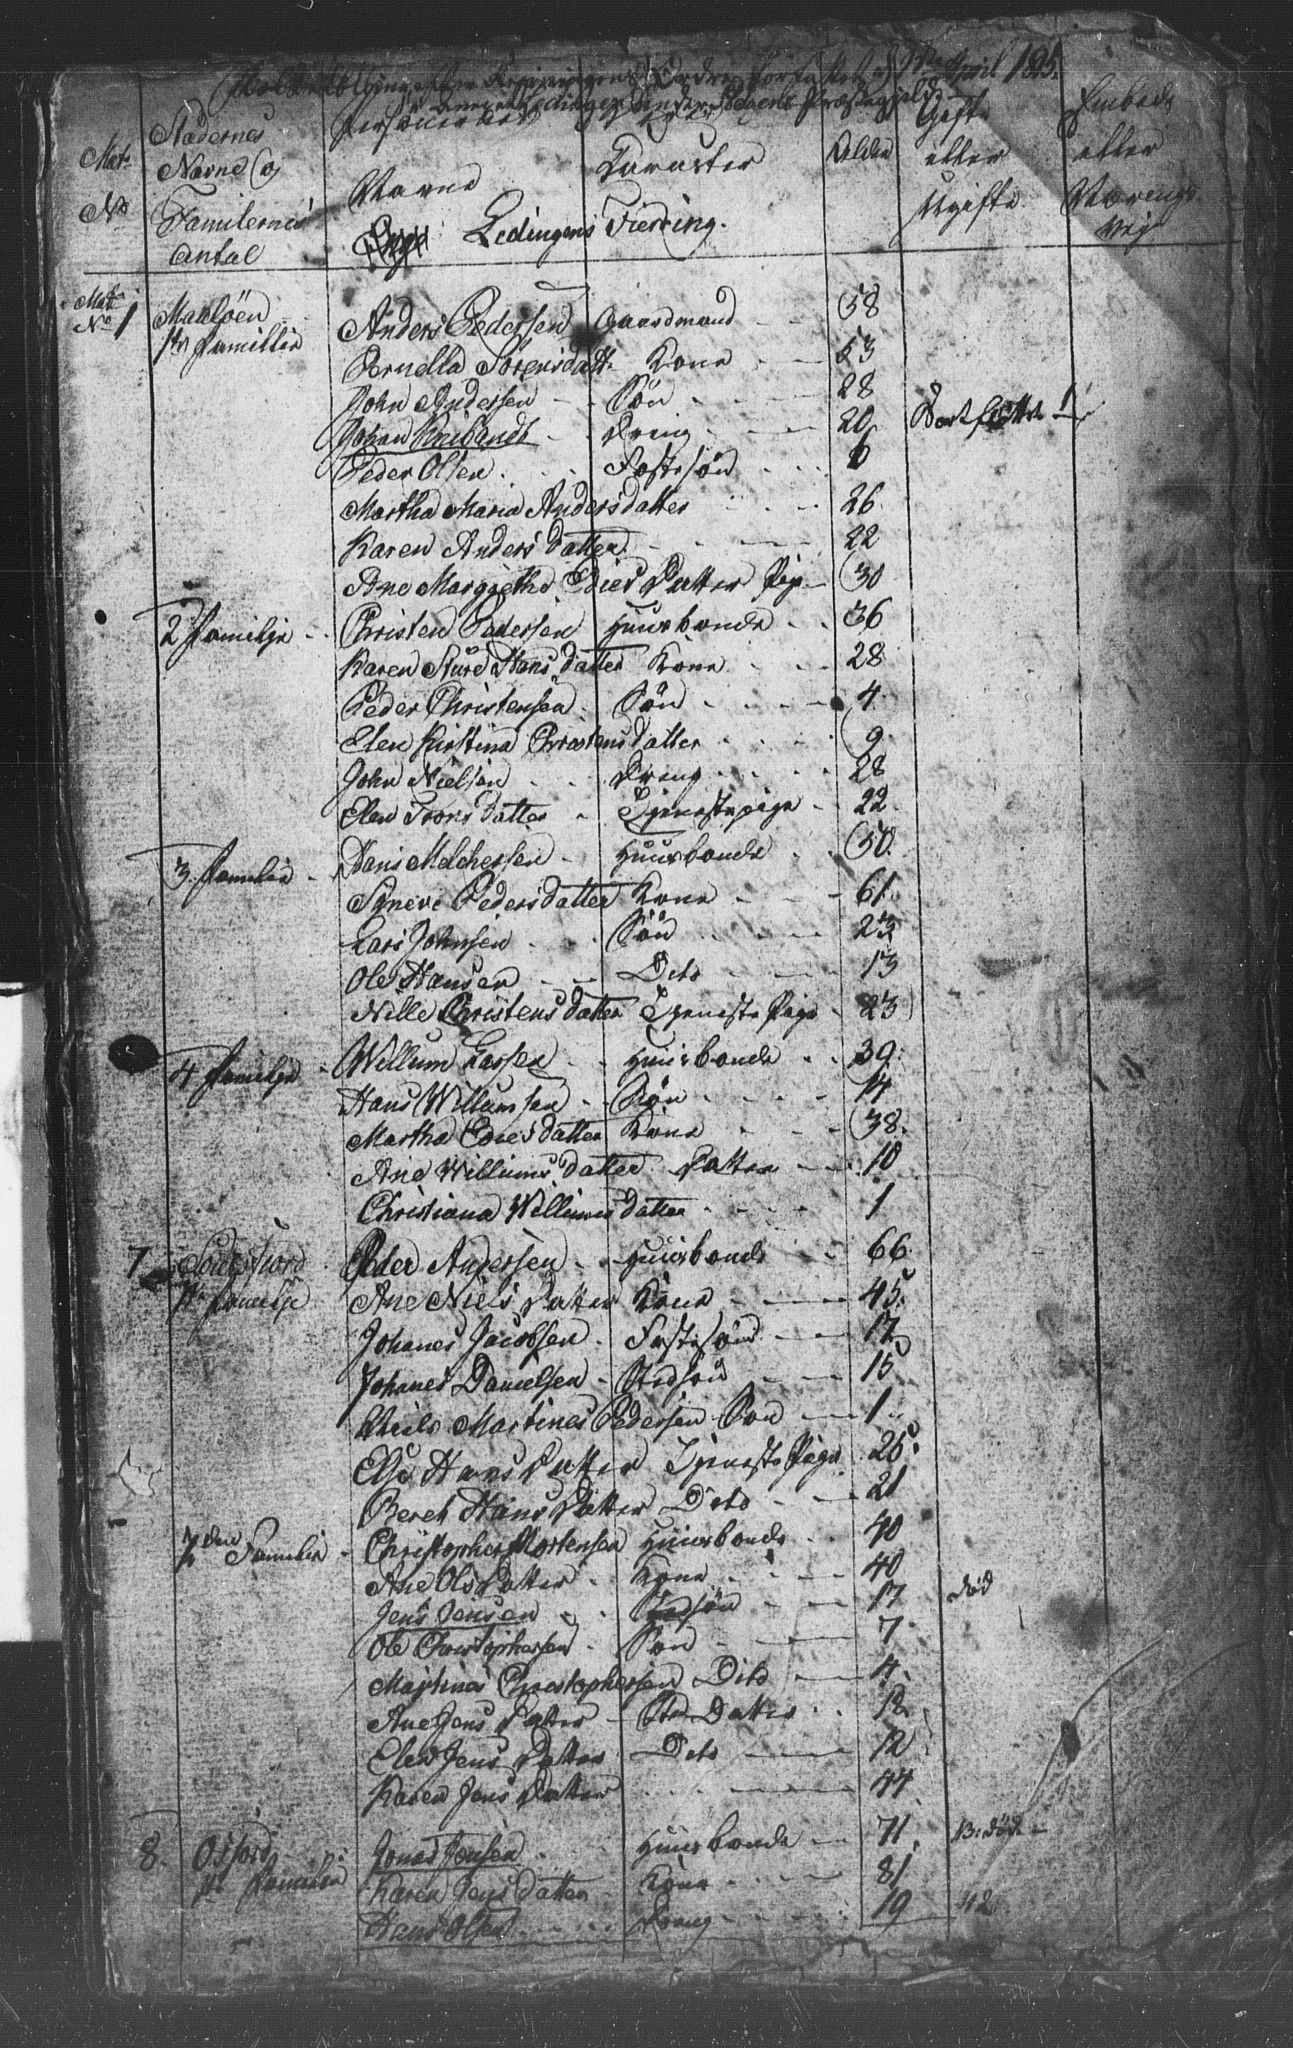 April 1825
Mat. No
Stædernes Navne og Familiernes Antal
Personernes Navne
Caracter
Alder
Gifte eller Ugifte
Embede eller Nærings Vej
Ledingens Fierring.
Mat. No 1 Maaløen
1te Familie
Anders Pedersen Gaardmand 58
Pernella Sørensdatt. Kone 53
John Andersen Søn 28
Johan Dreng 20
Peder Olsen Fostesøn
Martha Maria Andersdatter 26
Karen Anders datter 22
Ane Margrethe Edies Datter Pige 30
2 Familje Christen Pedersen Huusbonde 36
Karen Hans datter Kone 28
Peder Christensen Søn 4
Elen Kirstina Christensdatter 9
John Nielsen Dreng 28
Elen datter Tjenestepige 22
3. Familie Hans Melchersen Huusbonde 50
Syneve Pedersdatter Kone 61
Lars Johnsen Søn 23
Ole Hansen Dito 13
Nille Christens datter Tjeneste Pige 23
4 Familje Willum Larsen Huusbonde 39
Hans Willumsen Søn 14
Martha Edies datter Kone 38
Ane Willums datter Datter 10
Christiana Willums datter 1
7 Peder Andersen Huusbonde 66
1te Familje Ane Niels Datter Kone 45
Johanes Jacobsen Fostesøn 17
Johanes Danielsen Stedsøn 15
Niels Martines Pedersen Søn 1
Else Hans Datter Tjeneste Pige 25
Beret Hans Datter Dito 21
Familie Christopher Mortensen Huusbonde 40
Ane Ols Datter Kone 40
Jens Jensen Stedsøn 17 død
Ole Christophersen Søn 7
Martines Christophersen Dito 4
Ane Jens Datter Sted Datter 18
Elen Jens Datter Dito 12
Karen Jens Datter 44
8. Osfjord
1te Familie
Jonas Jonsen Huusbonde 71
Karen Jens datter Kone 81
Hans Olsen Dreng 19 42